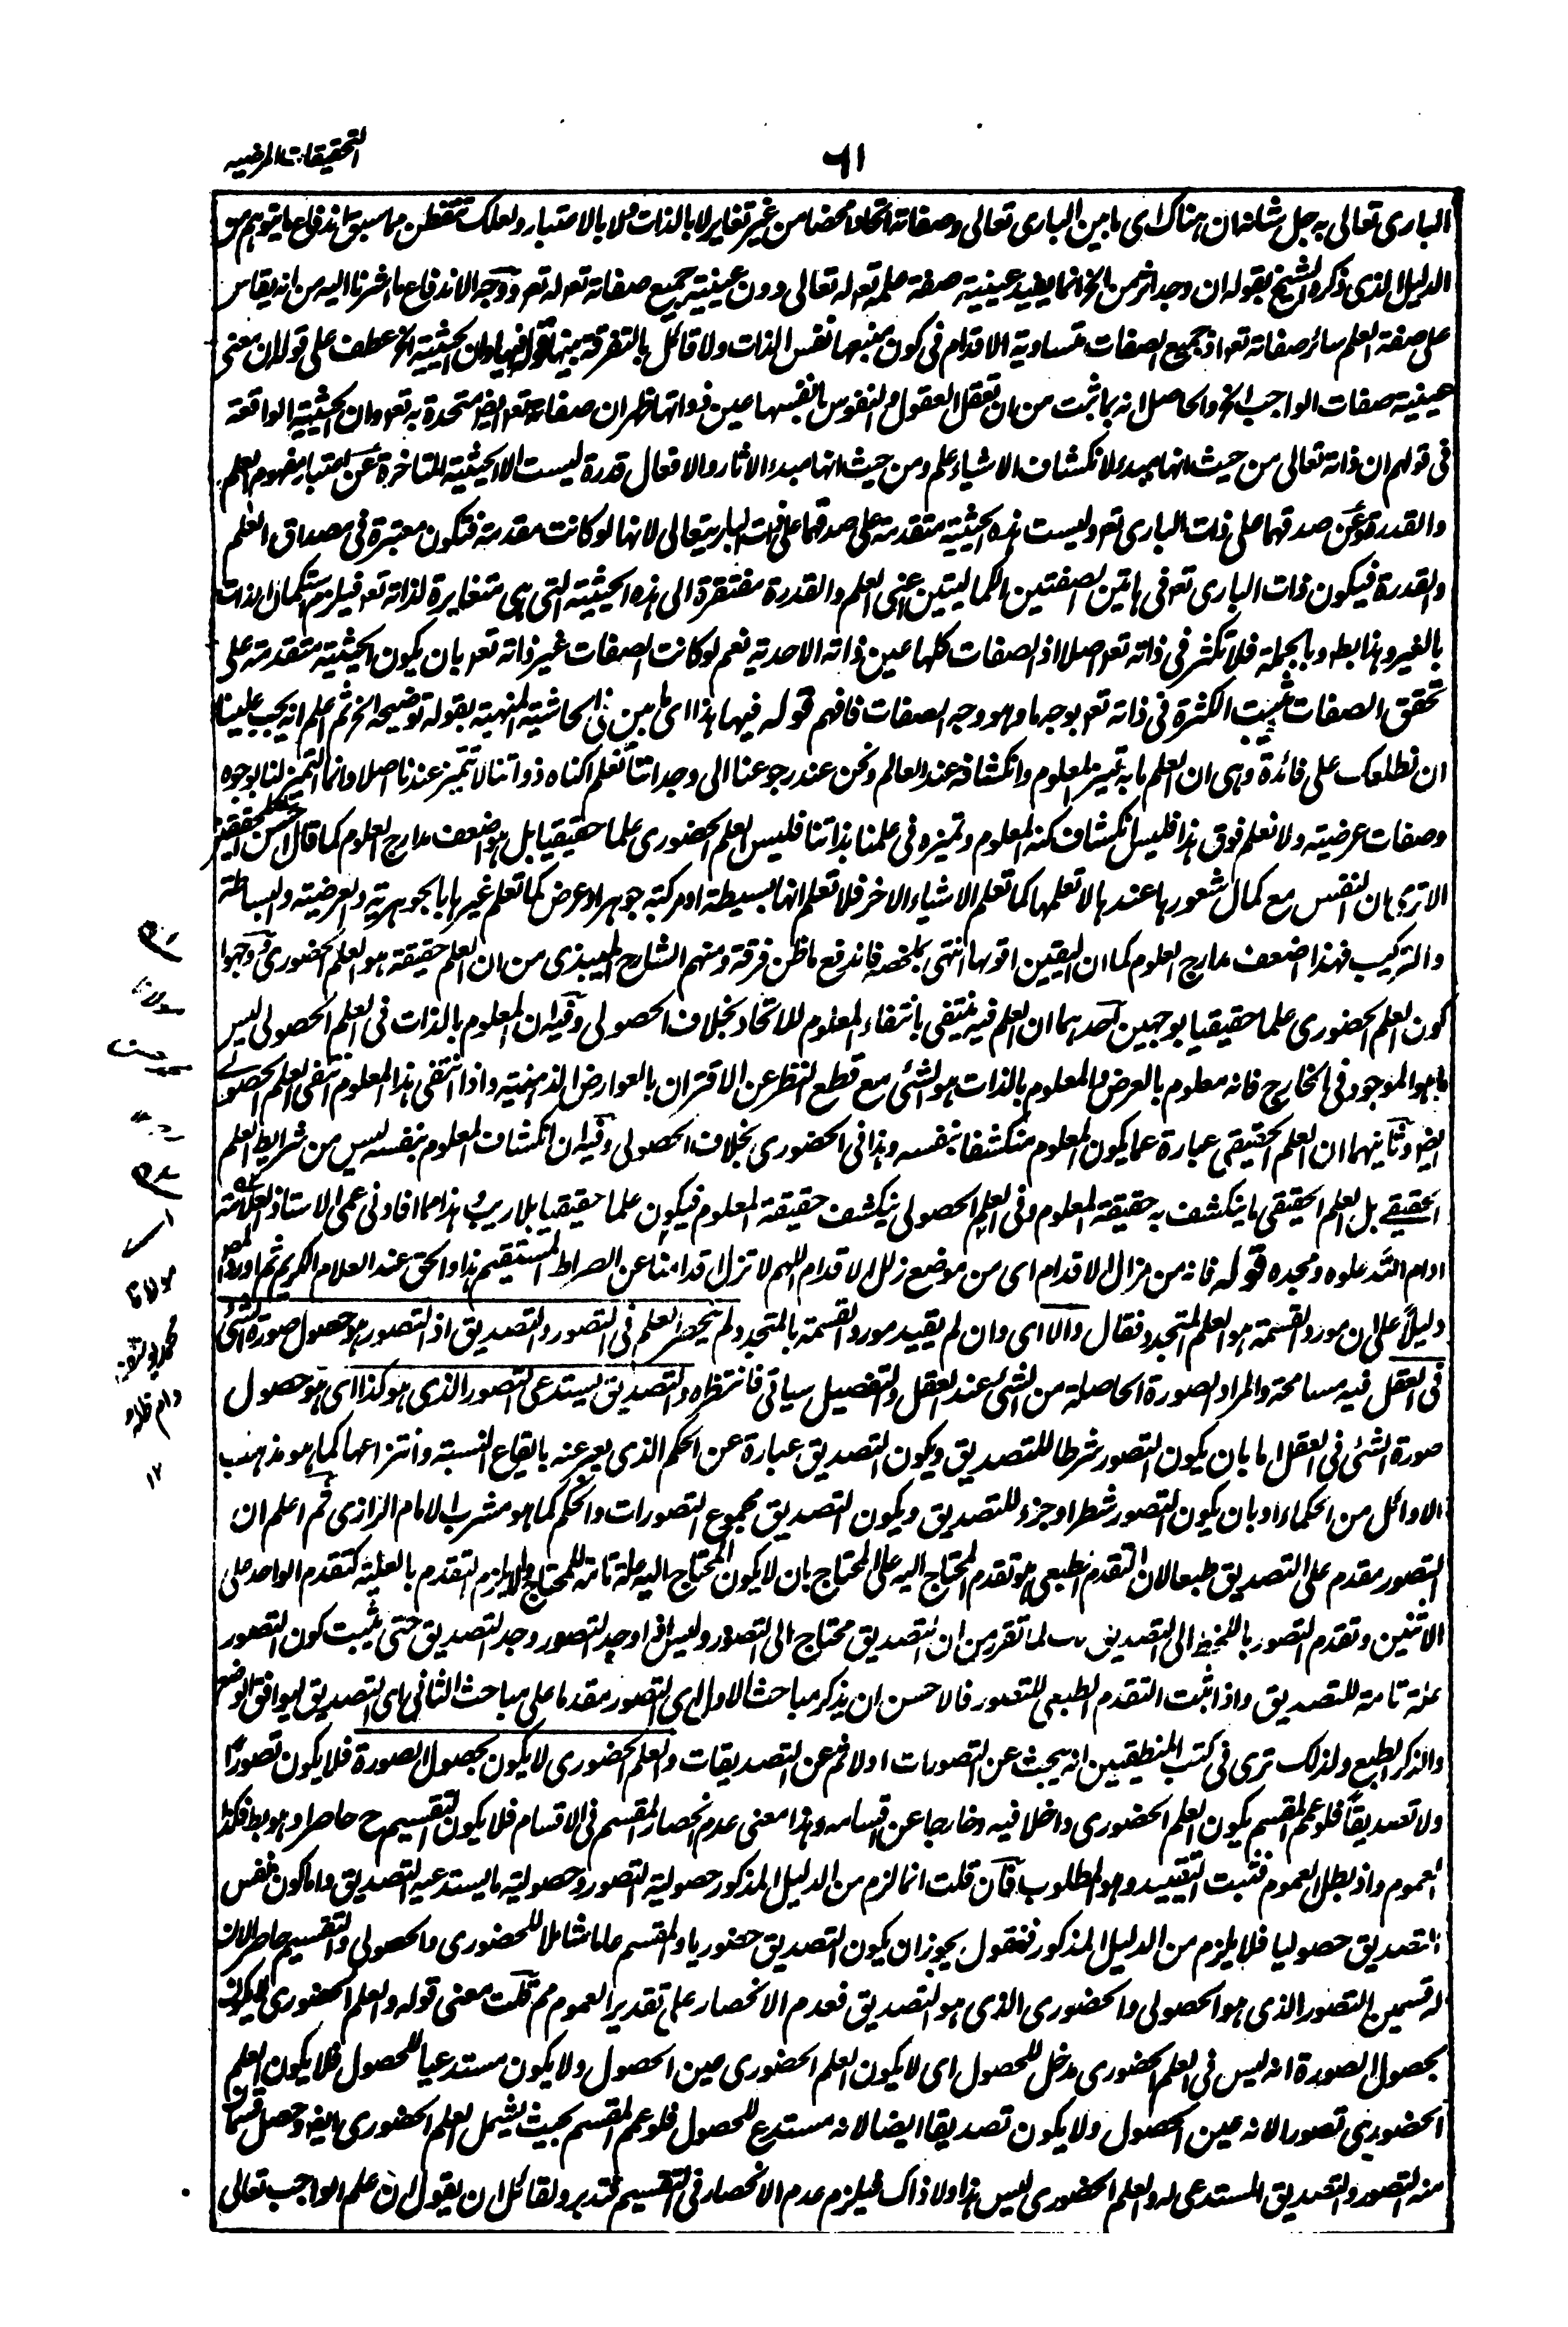 التحقيقات المرضيه
٦١
البارى تعالى به جل شانه ان هناك اى ما بين البارى تعالى وصفاته اتحادا محضا من غير تغاير لا بالذات ولا بالاعتبار ولعلك تتفطن مما سبق اندفاع ما يتوهم من
الدليل الذى ذكره الشيخ بقوله ان وجد اثر من الخ انما يفيد عينية صفة علمه تعـ له تعالى دون عينية جميع صفاته تعـ له تعـ ووجه الاندفاع ما اشرنا اليه من انه يقاس
على صفة العلم سائر صفاته تعـ اذ جميع الصفات متساوية الاقدام فى كون منبعها نفس الذات ولا قائل بالتفرقة بينها قوله فيها وان الحيثية الخ عطف على قوله ان معنى
عينية صفات الواجب الخ والحاصل انه بما ثبت من ان تعقل العقول والنفوس بانفسها عين ذواتها ظهر ان صفاته تعـ ايضـ متحدة به تعـ وان الحيثية الواقعة
فى قولهم ان ذاته تعالى من حيث انها مبدء لانكشاف الاشياء علم ومن حيث انها مبدء الاثار والافعال قدرة ليست الا الحيثية المتاخرة عن اعتبار مفهوم العلم
والقدرة وعن صدقهما على ذات البارى تعـ وليست هذه الحيثية متقدمة على صدقهما على ذات البارى تعالى لانها لو كانت مقدمة فتكون معتبرة فى مصداق العلم
والقدرة فيكون ذات البارى تعـ فى هاتين الصفتين الكماليتين اعنى العلم والقدرة مفتقرة الى هذه الحيثية التى هى متغايرة لذاته تعـ فيلزم استكمال الذات
بالغير وهذا بطـ وبالجملة فلا تكثر فى ذاته تعـ اصلا اذ الصفات كلها عين ذاته الاحدية نعم لو كانت الصفات غير ذاته تعـ بان يكون الحيثية متقدمة على
تحقق الصفات يثبت الكثرة فى ذاته تعـ بوجه ما وهو وجه الصفات فافهم قوله فيها هذا اى ما بين فى الحاشية المنهية بقوله توضيحه الخ ثم اعلم انه يجب علينا
ان نطلعك على فائدة وهى ان العلم ما به تميز المعلوم وانكشافه عند العالم ونحن عند رجوعنا الى وجداننا نعلم اكناه ذواتنا لا تتميز عندنا اصلا وانما التميز لنا بوجوه
وصفات عرضية ولا نعلم فوق هذا فليس انكشاف كنه المعلوم وتميزه فى علمنا بذاتنا فليس العلم الحضورى علما حقيقيا بل هو اضعف مدارج العلوم كما قال احسن المحققين
الا ترى ان النفس مع كمال شعورها عندها لا تعلمها كما تعلم الاشياء الاخر فلا تعلم انها بسيطة او مركبة جوهر او عرض كما تعلم غيرها بالجوهرية والعرضية والبساطة
والتركيب فهذا اضعف مدارج العلوم كما ان اليقين اقوها انتهى بلخصه فاندفع ما ظن فرقة ومنهم الشارح الميبذى من ان العلم حقيقة هو العلم الحضورى ووجهوا
كون العلم الحضورى علما حقيقيا بوجهين احدهما ان العلم فيه ينتفى بانتفاء المعلوم للاتحاد بخلاف الحصولى وفيه ان المعلوم بالذات فى العلم الحصولى ليس
ما هو الموجود فى الخارج فانه معلوم بالعرض والمعلوم بالذات هو الشئ مع قطع النظر عن الاقتران بالعوارض الذهنية واذا انتفى هذا المعلوم انتفى العلم الحصولى
ايضـ وثانيهما ان العلم الحقيقى عبارة عما يكون المعلوم منكشفا بنفسه وهذا فى الحضورى بخلاف الحصولى وفيه ان انكشاف المعلوم بنفسه ليس من شرايط العلم
الحقيقے بل العلم الحقيقى ما ينكشف به حقيقة المعلوم وفى العلم الحصولى ينكشف حقيقة المعلوم فيكون علما حقيقيا بلا ريب هذا مما افادنى عمى الاستاذ العلامة
ادام الله علوه ومجده قوله فانه من مزال الاقدام اى من موضع زلل الاقدام اللهم لا تزل اقدامنا عن الصراط المستقيم هذا والحق عند العلام الكريم ثم اورد المصـ
دليلاً على ان مورد القسمة هو العلم المتجدد فقال والا اى وان لم يقييد مورد القسمة بالمتجدد لم ينحصر العلم فى التصور والتصديق اذ التصور هو حصول صورة الشئ
فى العقل فيه مسامحة والمراد الصورة الحاصلة من الشئ عند العقل والتفصيل سياتى فانتظره والتصديق يستدعى التصور الذى هو كذا اى هو حصول
صورة الشئ فى العقل اما بان يكون التصور شرطا للتصديق ويكون التصديق عبارة عن الحكم الذى يعبر عنه بايقاع النسبة وانتزاعها كما هو مذهب
الاوائل من الحكماء او بان يكون التصور شطرا وجزء للتصديق ويكون التصديق مجموع التصورات والحكم كما هو مشرب الامام الرازى ثم اعلم ان
التصور مقدم على التصديق طبعا لان التقدم الطبعى هو تقدم المحتاج اليه على المحتاج بان لا يكون المحتاج اليه علة تامة للمحتاج والا يلزم التقدم بالعلية كتقدم الواحد على
الاثنين وتقدم التصور بالنظر الى التصديق لما تقرر من ان التصديق محتاج الى التصور وليس اذا وجد التصور وجد التصديق حتى يثبت كون التصور
علة تامة للتصديق واذا ثبت التقدم الطبعى للتصور فالاحسن ان يذكر مباحث الاول اى التصور مقدما على مباحث الثانى اى التصديق ليوافق الوضع
والذكر الطبع ولذلك ترى فى كتب المنطقيين انه يبحث عن التصورات اولا ثم عن التصديقات والعلم الحضورى لا يكون بحصول الصورة فلا يكون تصورًا
ولا تصديقاً فلو عم المقسم يكون العلم الحضورى داخلا فيه وخارجا عن اقسامه وهذا معنى عدم انحصار المقسم فى الاقسام فلا يكون التقسيم ح حاصرا وهو بط فكذا
العموم واذ بطل العموم فثبت التقييد وهو المطلوب فان قلت انما لزم من الدليل المذكور حصولية التصور وحصولية ما يستدعيه التصديق واما كون نفس
التصديق حصوليا فلا يلزم من الدليل المذكور فنقول يجوز ان يكون التصديق حضوريا والمقسم علما شاملا للحضورى والحصولى والتقسيم حاصر لان
له قسمين التصور الذى هو الحصولى والحضورى الذى هو التصديق فعدم الانحصار على تقدير العموم مم قلت معنى قوله والعلم الحضورى لا يكون
بحصول الصورة انه ليس فى العلم الحضورى مدخل للحصول اى لا يكون العلم الحضورى عين الحصول ولا يكون مستدعيا للحصول فلا يكون العلم
الحضورى تصورا لانه عين الحصول ولا يكون تصديقا ايضا لانه مستدع للحصول فلو عم المقسم بحيث يشمل العلم الحضورى ايضـ وحصل قسمان
منه التصور والتصديق المستدعى له والعلم الحضورى ليس هذا ولا ذاك فيلزم عدم الانحصار فى التقسيم فتدبر ولقائل ان يقول ان علم الواجب تعالى
مولانا
دام ظله
١٢